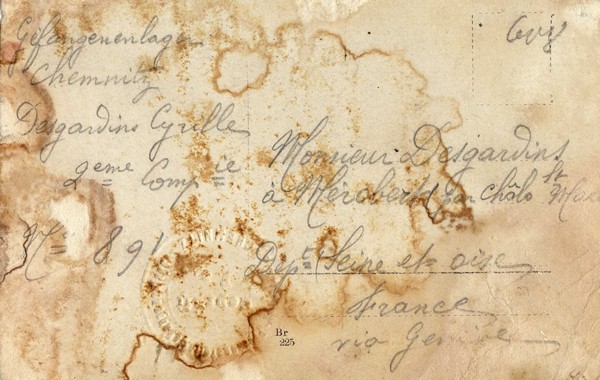 Gefangenenlager
Chemnitz
Desgardins Cyrille
2eme Compie
N= 891
Monsieur Desgardins
à Mérobert par châlo St
Dept= Seine et oise
France
via
Br
225